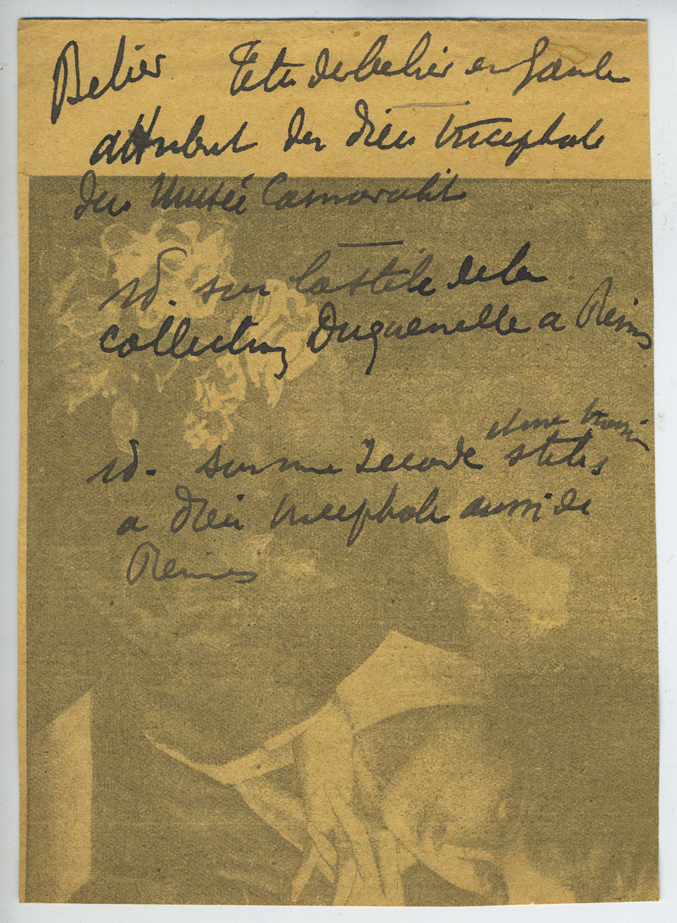 Belier Tete de belier en Gaule
attribut du dieu tricephale
du Musée Carnavalet
id. sur la stele de la
collection Duquenelle a Reims
et une troisi
id. sur une seconde steles
a dieu tricephale aussi de
Reims